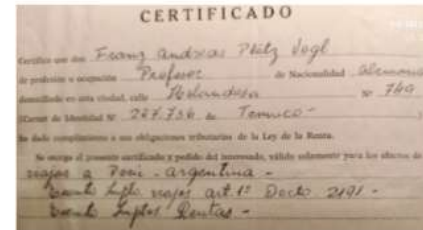 CERTIFICADO
Certifico que don Franz Andreas Plätz Vogl
de profesión u ocupación Profesor de Nacionalidad Alemana
domiciliado en esta ciudad, calle Holandesa Nº 749
(Carnet de Identidad Nº 227.736 de Temuco -
ha dado cumplimiento a sus obligaciones tributarias de la Ley de la Renta.
Se otorga el presente certificado a pedido del interesado, válido solamente para los efectos de
viajes a Perú - Argentina -
viajes art. 1º Decto. 2191 -
Rentas -